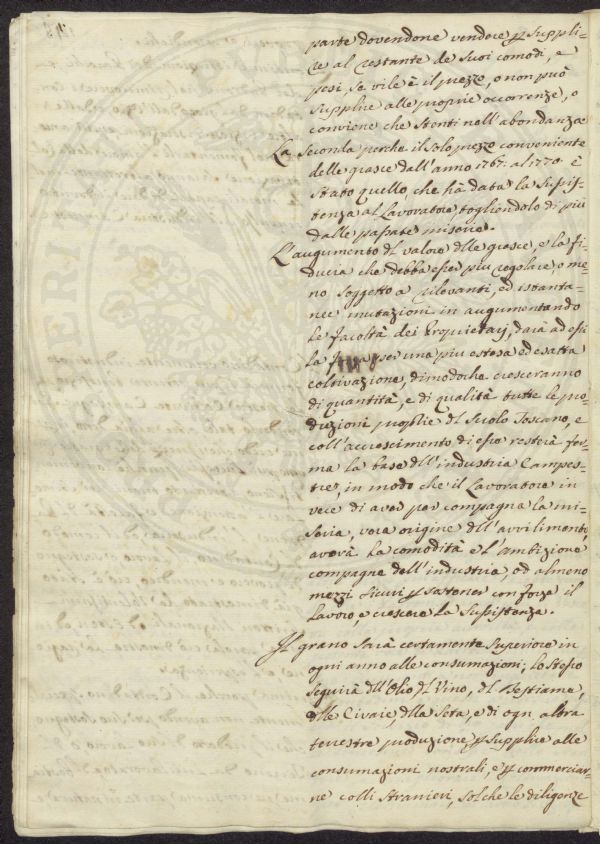 parte dovendone vendere p suppli-
re al restante de suoi comodi, e
pesi, se vile è il prezzo, o non può
supplire alle proprie occorrenze, o
conviene che stenti nell'abondanza
La seconda perche il solo prezzo conveniente
delle grasce dall'anno 1767: al 1770: è
stato quello, che hà data la sussis-
tenza al Lavoratore, togliendolo di più
dalle passate miserie.
L'augumento dl valore dlle grasce, e la fi-
ducia che debba esser più regolare, o me-
no soggetto a rilevanti, ed istanta-
nee mutazioni in augumentando
le facoltà dei Proprietarj, darà ad essi
la forza per una più estesa ed esatta
coltivazione, dimodoche cresceranno
di quantità, e di qualità tutte le pro-
duzioni proprie dl Suolo Toscano, e
coll'accrescimento di esse resterà fer-
ma la base dll'industria Campes-
tre, in modo che il Lavoratore in
vece di aver per compagna la mi-
seria, vera origine dll'avvilimento,
averà la comodità e l'ambizione
compagne dell'industria, ed almeno
mezzi sicuri p sostener con forza il
lavoro, e crescere la sussistenza.
Il grano sarà certamente superiore in
ogni anno alle consumazioni; lo stesso
seguirà dll'Olio dl Vino, dl Bestiame,
dlle Civaie, dlla Seta, e di ogn'altra
terrestre produzione, p supplire alle
consumazioni nostrali, e p commerciar-
ne colli stranieri, solche le diligenze